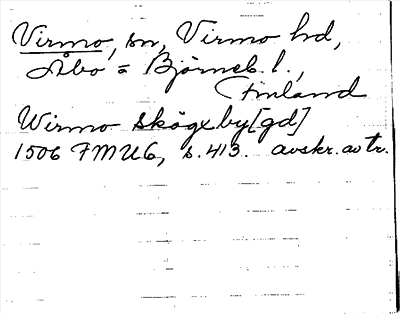 Virmo, sn, Virmo hd,
Åbo = Björneb. l.,
Finland
Wirmo skögx by [gd]
1506 FMU6, s. 413. avskr. av tr.